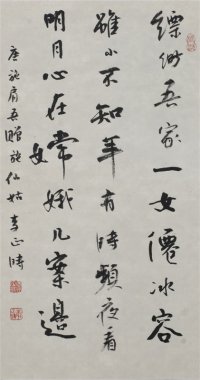 缥缈吾家一女僊冰容
雖小不知年有時頻夜看
明月心在常娥几案邊
女
唐施肩吾贈施仙姑 李正時